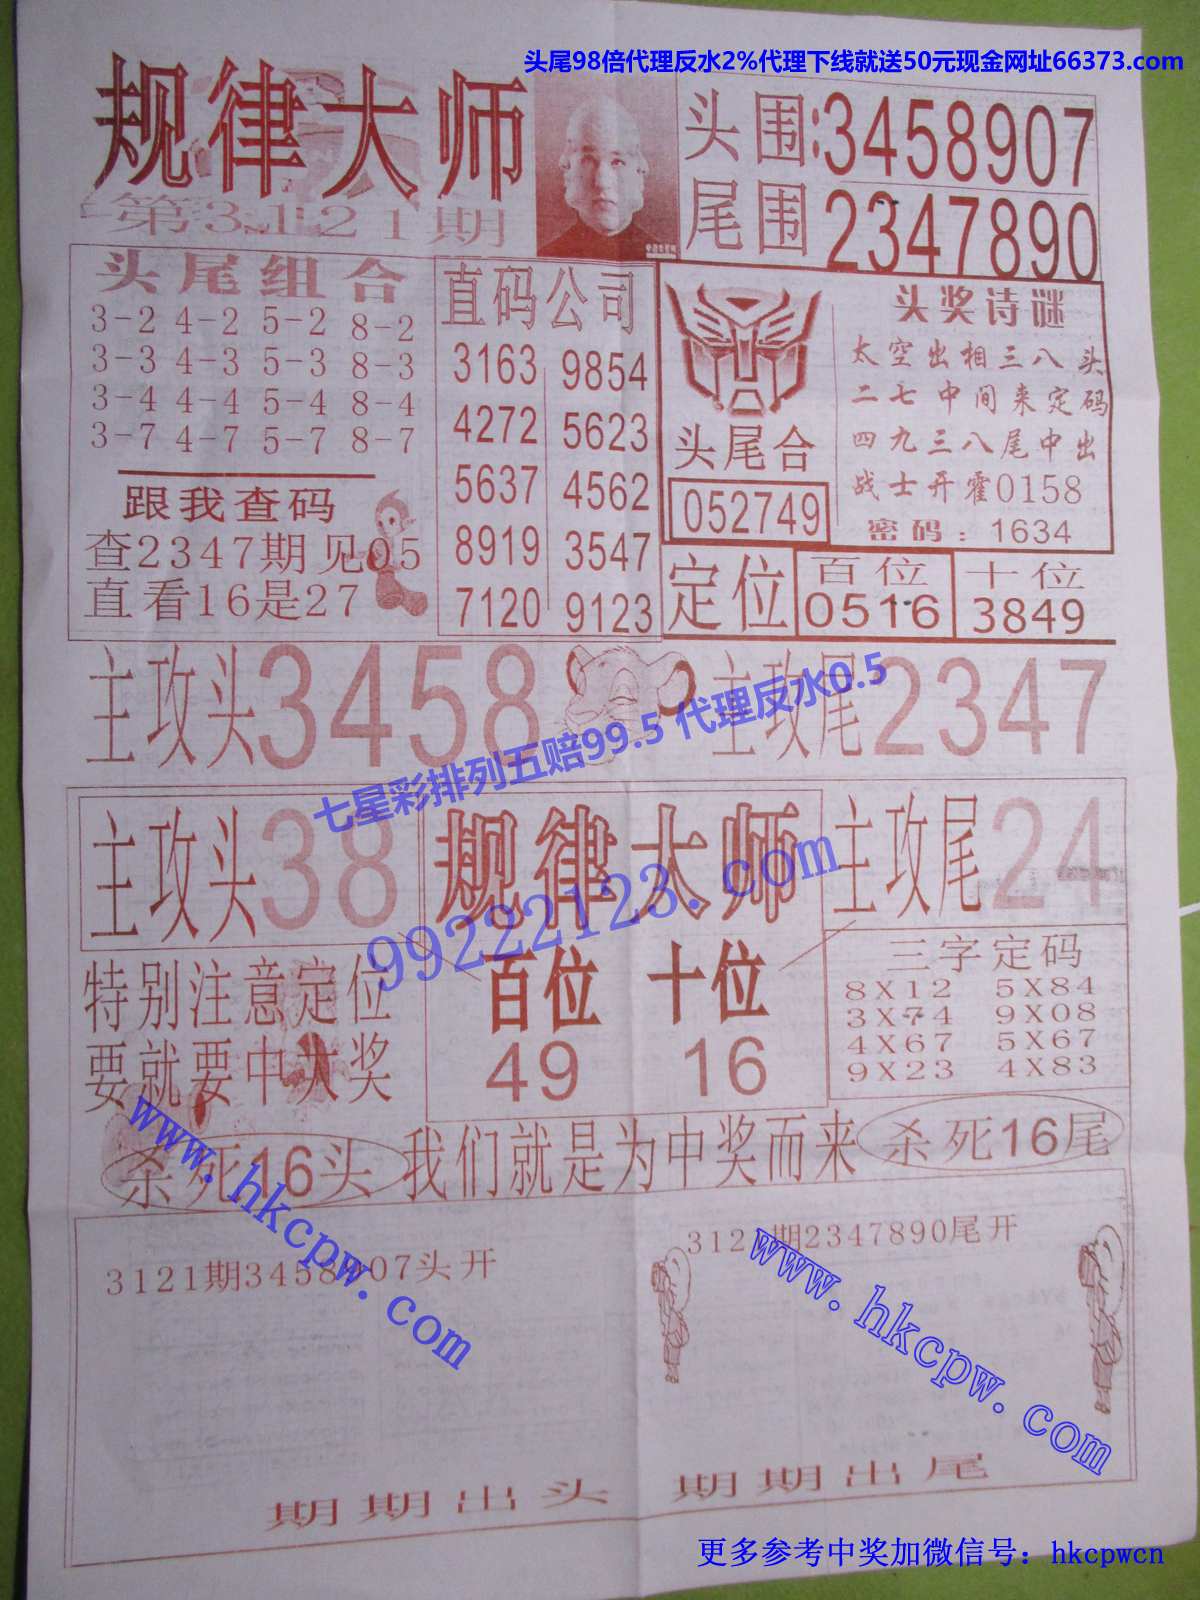 头尾98倍代理反水2%代理下线就送50元现金网址66373.com
规律大师
第3121期
头围:3458907
尾围2347890
头尾组合
3-2 4-2 5-2 8-2
3-3 4-3 5-3 8-3
3-4 4-4 5-4 8-4
3-7 4-7 5-7 8-7
跟我查码
查2347期见05
直看16是27
直码公司
3163 9854
4272 5623
5637 4562
8919 3547
7120 9123
头尾合
052749
头奖诗谜
太空出相三八头
二七中间来定码
四九三八尾中出
战士开霍0158
密码:1634
定位
百位
0516
十位
3849
主攻头3458
主攻尾2347
七星彩排列五赔99.5 代理反水0.5
99222123.com
主攻头38
规律大师
主攻尾24
特别注意定位
要就要中大奖
百位 十位
49 16
三字定码
8X12 5X84
3X74 9X08
4X67 5X67
9X23 4X83
杀死16头
我们就是为中奖而来
杀死16尾
www.hkcpw.com
www.hkcpw.com
3121期3458907头开
3121期2347890尾开
期期出头 期期出尾
更多参考中奖加微信号：hkcpwcn